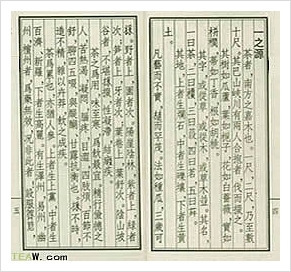 一之源
茶者，南方之嘉木也。一尺、二尺，乃至數
十尺。其巴山峽川，有兩人合抱者，伐而掇之。
其樹如瓜蘆，葉如梔子，花如白薔薇，實如
栟櫚，蒂如丁香，根如胡桃。
其字，或從草，或從木，或草木並。其名，
一曰茶，二曰檟，三曰蔎，四曰茗，五曰荈。
其地，上者生爛石，中者生礫壤，下者生黃
土。
凡藝而不實，植而罕茂，法如種瓜，三歲可
四
採。野者上，園者次。陽崖陰林，紫者上，綠者
次；筍者上，牙者次；葉卷上，葉舒次。陰山坡
谷者，不堪採掇，性凝滯，結瘕疾。
茶之爲用，味至寒，爲飲最宜。精行儉德之
人，若熱渴、凝悶、腦疼、目澀、四肢煩、百節不
舒，聊四五啜，與醍醐、甘露抗衡也。採不時，
造不精，雜以卉莽，飲之成疾。
茶爲累也，亦猶人參。上者生上黨，中者生
百濟、新羅，下者生高麗。有生澤州、易州、幽
州、檀州者，爲藥無效，況非此者！設服薺苨，
五
TEAW.com